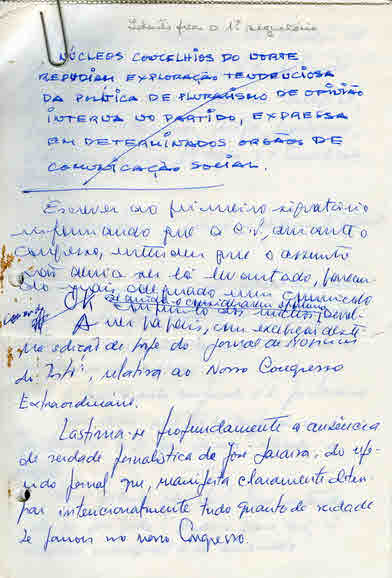 para o 1º signatário
NÚCLEOS CONCELHIOS DO NORTE
REPUDIAM EXPLORAÇÃO TENDENCIOSA
DA POLÍTICA DE PLURALISMO DE OPINIÃO
INTERNA NO PARTIDO, EXPRESSA
EM DETERMINADOS ORGÃOS DE
COMUNICAÇÃO SOCIAL.
Escrever ao primeiro signatário
informando que a C.P., durante o
Congresso, entendeu que o assunto
não devia ser lá levantado, parecen-
do mais adequado um comunicado
OK
A ver papeis, com exclusão deste
na edição de hoje do Jornal de Notícias
relativa ao Nosso Congresso
Extraordinário.
Lastima-se profundamente a ausência
de verdade jornalística de José Saraiva, do refe-
rido jornal que, manifesta claramente detur-
par intencionalmente tudo quanto de verdade
se passou no nosso Congresso.